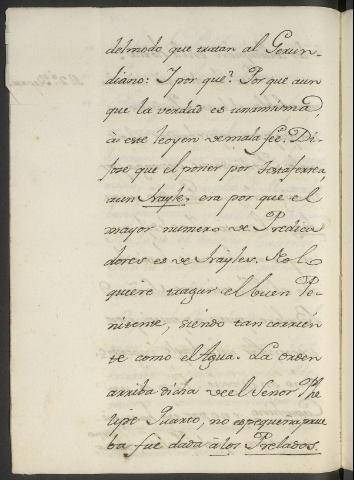 delmodo que tratan al Gerun-
diano: I por què? Porque aun
que la verdad es unamisma,
à este leoyen de mala fee. Di-
jose que el poner por
aun frayle, era por que el
mayor numero de Predica
dores es de frayles. No lo
quiere tragar el buen Pe-
nitente, siendo tan corrien
te como el Agua. La orden
arriba dicha de el Señor Phe
lipe Quarto, no es pequeña prue
ba fuè dada à los Prelados.